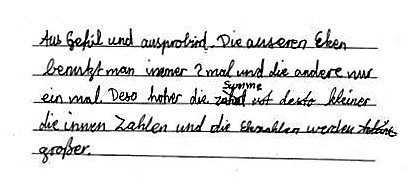 Aus Gefül und ausprobird. Die auseren Eken
benutzt man immer 2 mal und die andere nur
ein mal. Deso hoher die Summe ist desto kleiner
die innen Zahlen und die Ekzahlen werden
großer.